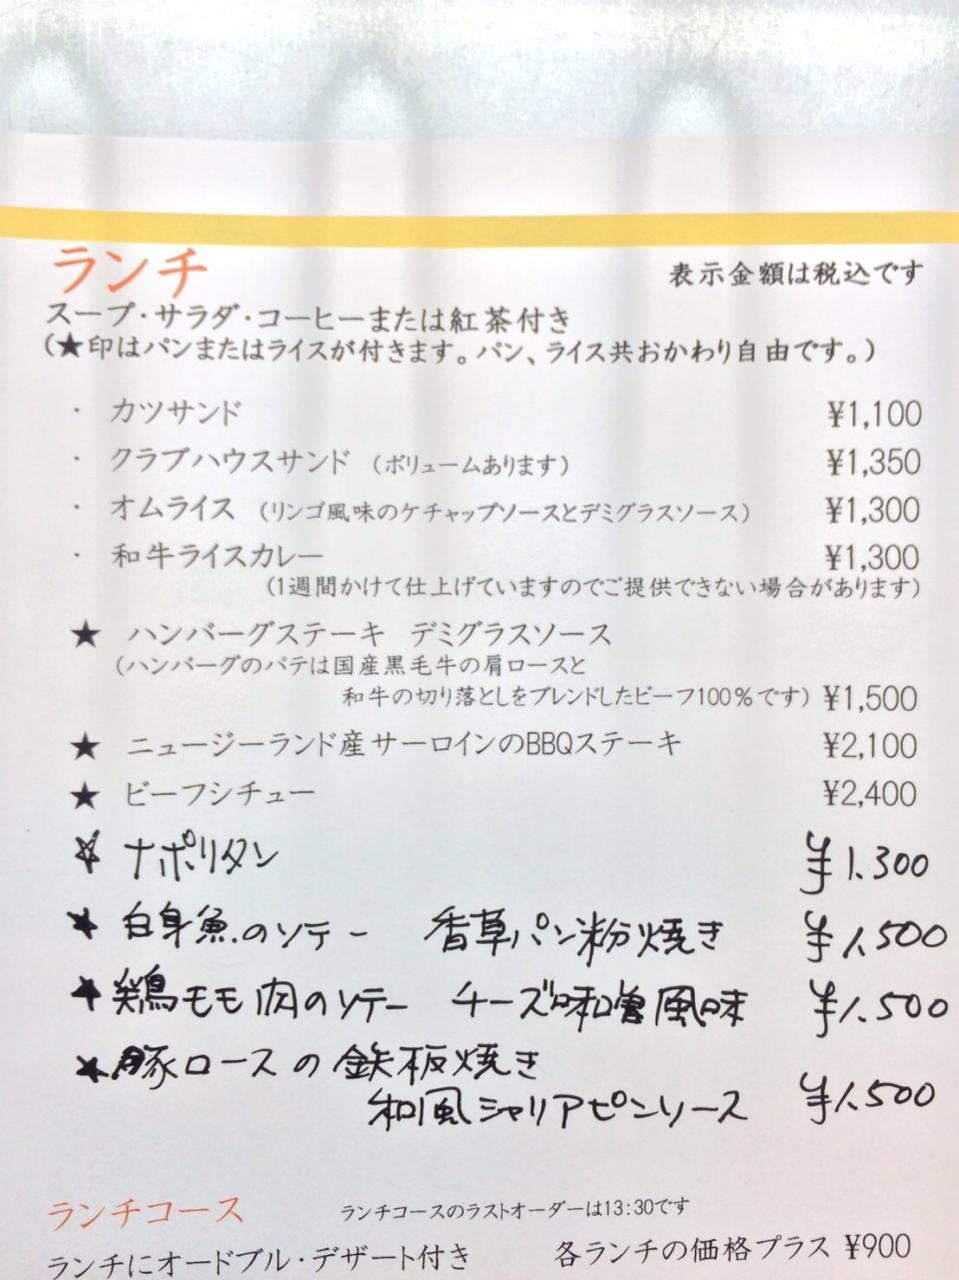 ランチ
表示金額は税込です
スープ・サラダ・コーヒーまたは紅茶付き
(★印はパンまたはライスが付きます。パン、ライス共おかわり自由です。)
・ カツサンド ¥1,100
・ クラブハウスサンド (ボリュームあります) ¥1,350
・ オムライス (リンゴ風味のケチャップソースとデミグラスソース) ¥1,300
・ 和牛ライスカレー ¥1,300
(1週間かけて仕上げていますのでご提供できない場合があります)
★ ハンバーグステーキ デミグラスソース
(ハンバーグのパテは国産黒毛牛の肩ロースと
和牛の切り落としをブレンドしたビーフ100%です) ¥1,500
★ ニュージーランド産サーロインのBBQステーキ ¥2,100
★ ビーフシチュー ¥2,400
☆ ナポリタン ¥1.300
★ 白身魚のソテー 香草パン粉焼き ¥1.500
★ 鶏モモ肉のソテー チーズ味噌風味 ¥1.500
★ 豚ロースの鉄板焼き
和風シャリアピンソース ¥1.500
ランチコース ランチコースのラストオーダーは13:30です
ランチにオードブル・デザート付き 各ランチの価格プラス ¥900